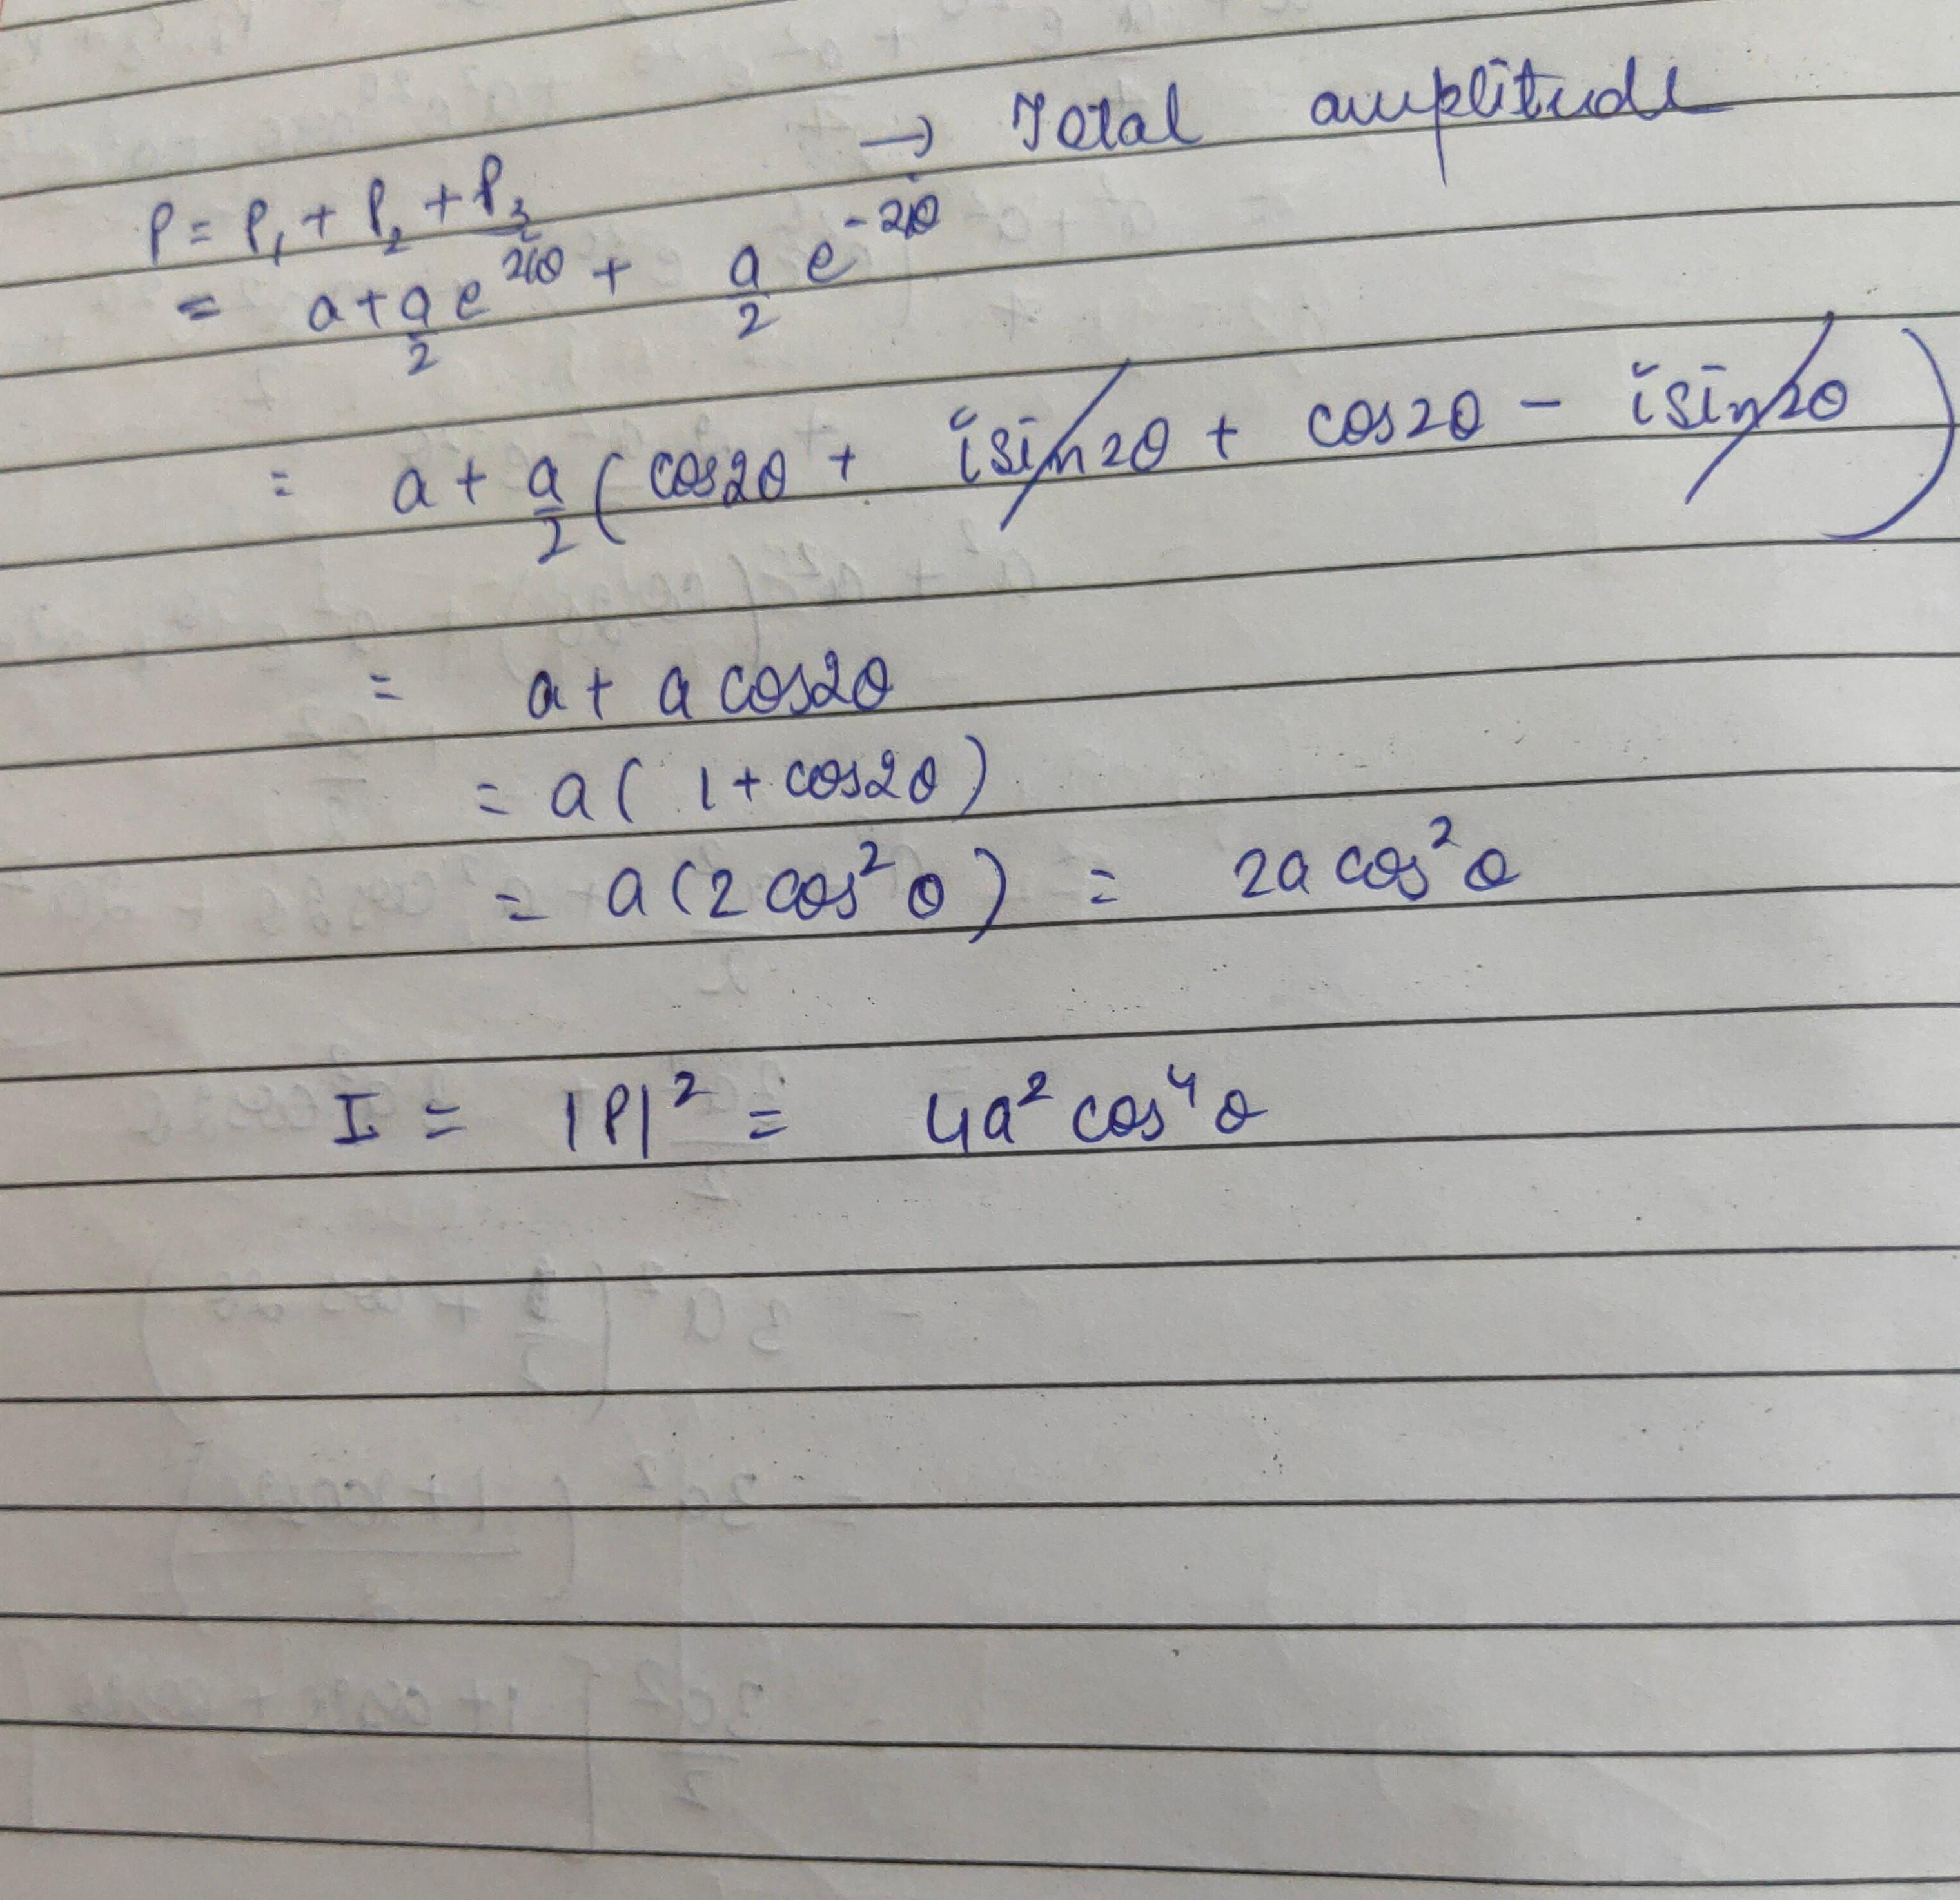 → Total amplitude
P = P₁ + P₂ + P₃
= a + a/2 e^{2iθ} + a/2 e^{-2iθ}
= a + a/2 ( cos2θ + isin2θ + cos2θ - isin2θ )
= a + a cos2θ
= a ( 1 + cos2θ )
= a ( 2 cos²θ ) = 2a cos²θ
I = |P|² = 4a² cos⁴θ